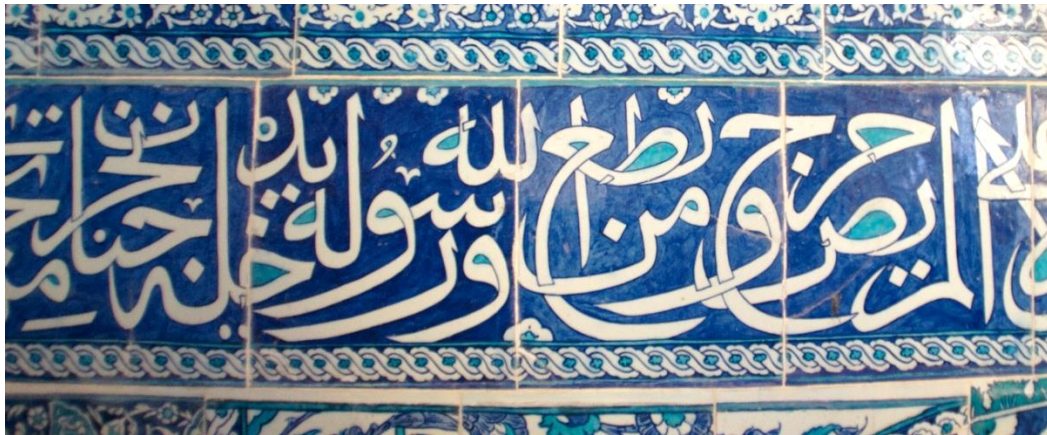 على المريض حرج ومن يطع الله ورسوله يدخله جنات تجري من